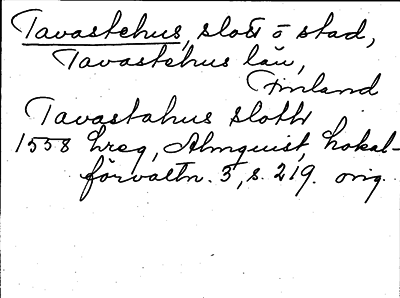 Tavastehus, slott o stad,
Tavastehus län,
Finland
Tavastahus slott
1558 hreg, Almquist, Lokal-
förvaltn. 3, s. 219. orig.